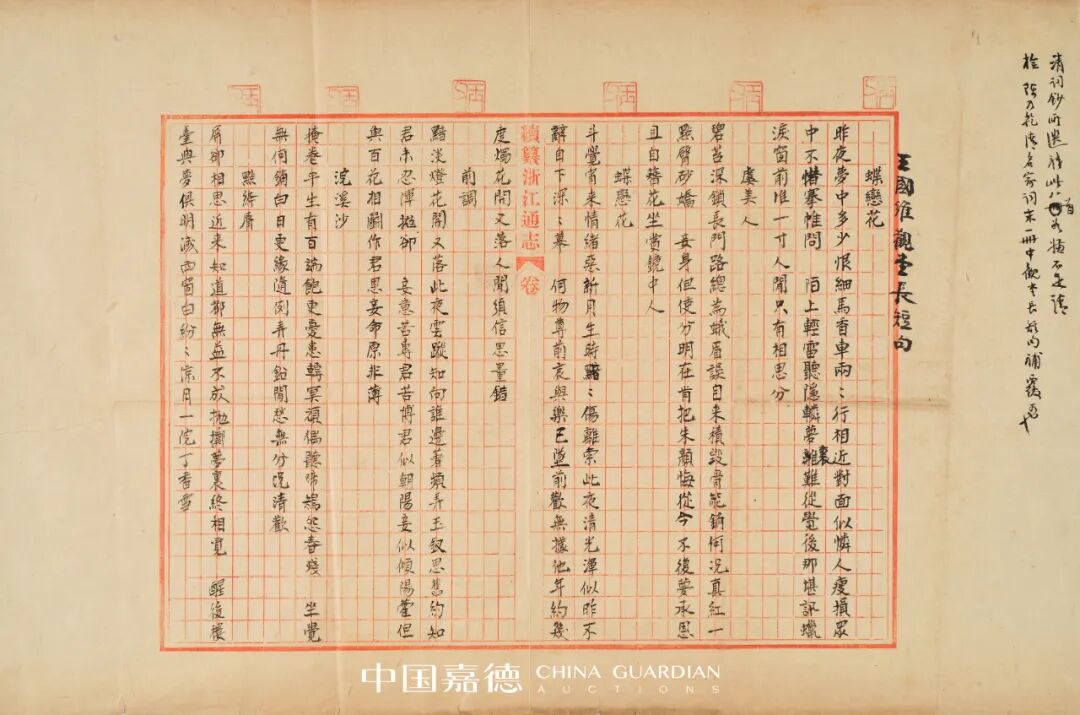 於陳乃乾清名家詞末一冊中觀堂長短句補
王國維觀堂長短句
蝶戀花
昨夜夢中多少恨細馬香車兩〻行相近對面似憐人瘦損眾
中不惜搴帷問　陌上輕雷聽隱轔夢裏難從覺後那堪訊蠟
淚窗前堆一寸人間只有相思分
虞美人
碧苔深鎖長門路總為蛾眉誤自來積毀骨能銷何況真紅一
點臂砂嬌　妾身但使分明在肯把朱顏悔從今不復夢承恩
且自簪花坐賞鏡中人
蝶戀花
斗覺宵來情緒惡新月生時黯〻傷離索此夜清光渾似昨不
辭自下深〻幕　何物尊前哀與樂已墜前歡無據他年約幾
續纂浙江通志　卷
度燭花開又落人間須信思量錯
前調
黯淡燈花開又落此夜雲蹤知向誰邊著頻弄玉釵思舊約知
君未忍渾拋卻　妾意苦專君苦博君似朝陽妾似傾陽藿但
與百花相鬭作君恩妾命原非薄
浣溪沙
掩卷平生有百端飽更憂患轉冥頑偶聽啼鴂怨春殘　坐覺
無何銷白日更緣隨例弄丹鉛閒愁無分況清歡
點絳唇
屏卻相思近來知道都無益不成拋擲夢裏終相覓　醒後樓
臺與夢俱明滅西窗白紛〻涼月一院丁香雪
中国嘉德 CHINA GUARDIAN
AUCTIONS